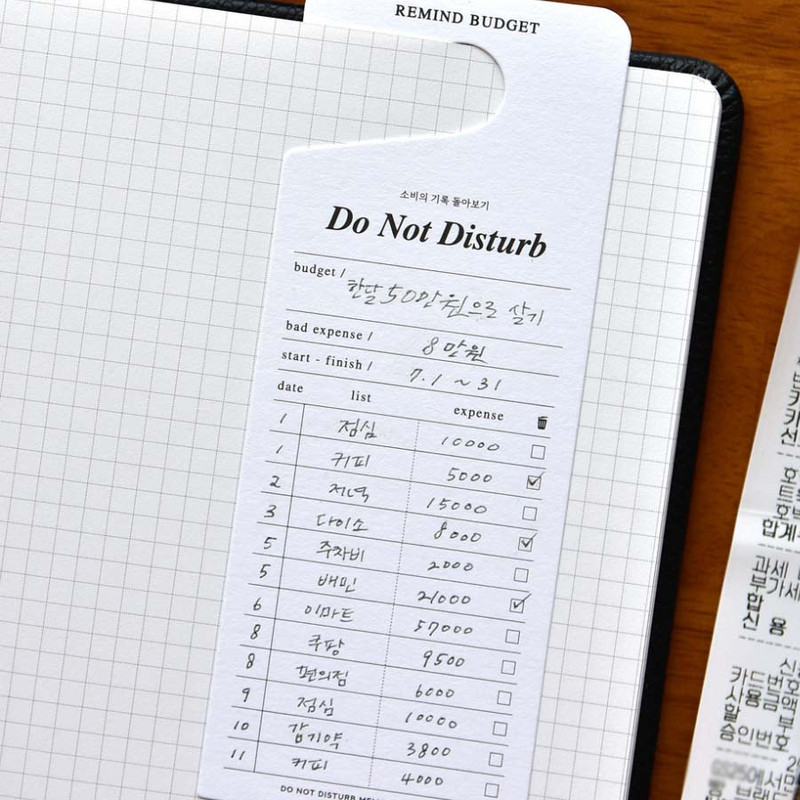 REMIND BUDGET
소비의 기록 돌아보기
Do Not Disturb
budget / 한달 50만원으로 살기
bad expense / 8만원
start - finish / 7.1 ~ 31
date list expense
1 점심 10000
1 커피 5000
2 저녁 15000
3 다이소 8000
5 주차비 2000
5 배민 21000
6 이마트 57000
8 쿠팡 9500
8 편의점 6000
9 점심 10000
10 감기약 3800
11 커피 4000
합계
과세
부가세
합
신 용
카드번호
사용금액
할 부
승인번호